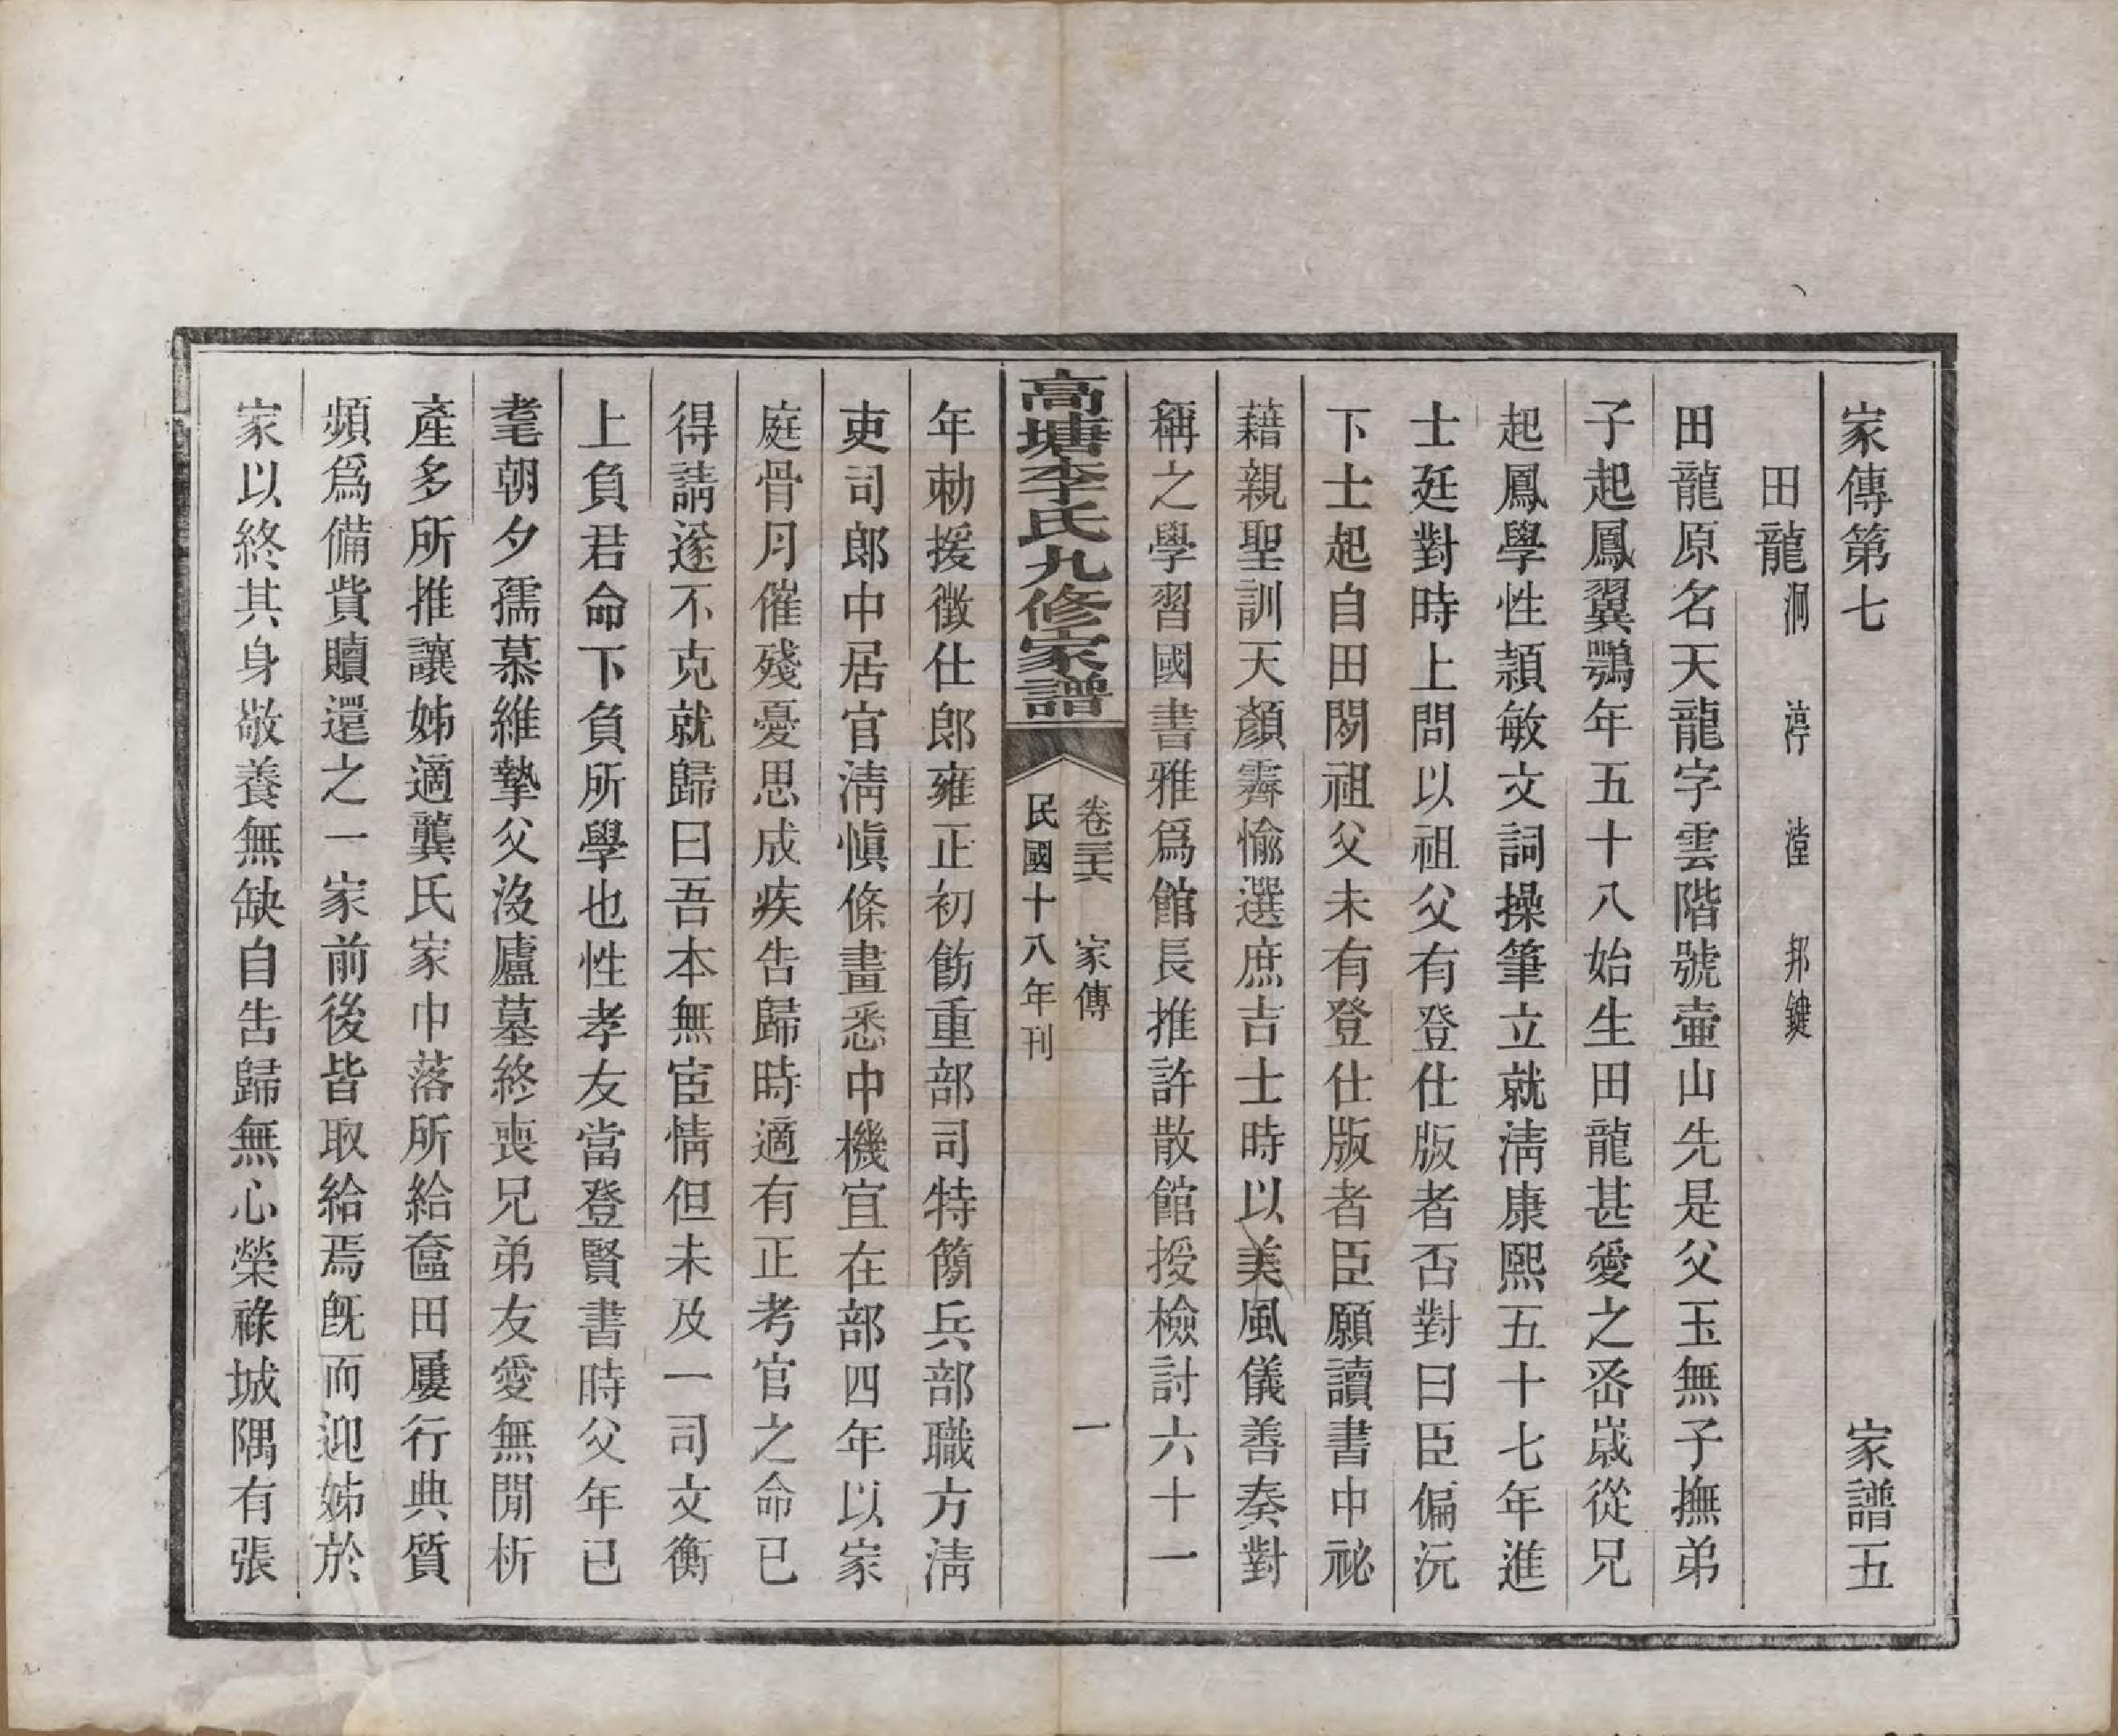 家傳第七　家譜五
田龍 洞　渟　漟　邦鍵
田龍原名天龍字雲階號壷山先是父玉無子撫弟
子起鳳翼鶚年五十八始生田龍甚愛之㞼嵗從兄
起鳳學性穎敏文詞操筆立就淸康熙五十七年進
士廷對時上問以祖父有登仕版者否對曰臣偏沅
下士起自田閒祖父未有登仕版者臣願讀書中祕
藉親聖訓天顏霽愉選庶吉士時以美風儀善奏對
稱之學習國書雅爲館長推許散館授檢討六十一
高塘李氏九修家譜
卷三十六　家傳　一
民國十八年刊
年勅援徵仕郎雍正初飭重部司特簡兵部職方淸
吏司郎中居官淸愼條畫悉中機宜在部四年以家
庭骨月催殘憂思成疾告歸時適有正考官之命已
得請遂不克就歸曰吾本無宦情但未及一司文衡
上負君命下負所學也性孝友當登賢書時父年已
耄朝夕孺慕維摯父沒廬墓終喪兄弟友愛無閒析
產多所推讓姊適龔氏家中落所給奩田屢行典質
頻爲備貲贖還之一家前後皆取給焉旣而迎姊於
家以終其身敬養無缺自告歸無心榮祿城隅有張